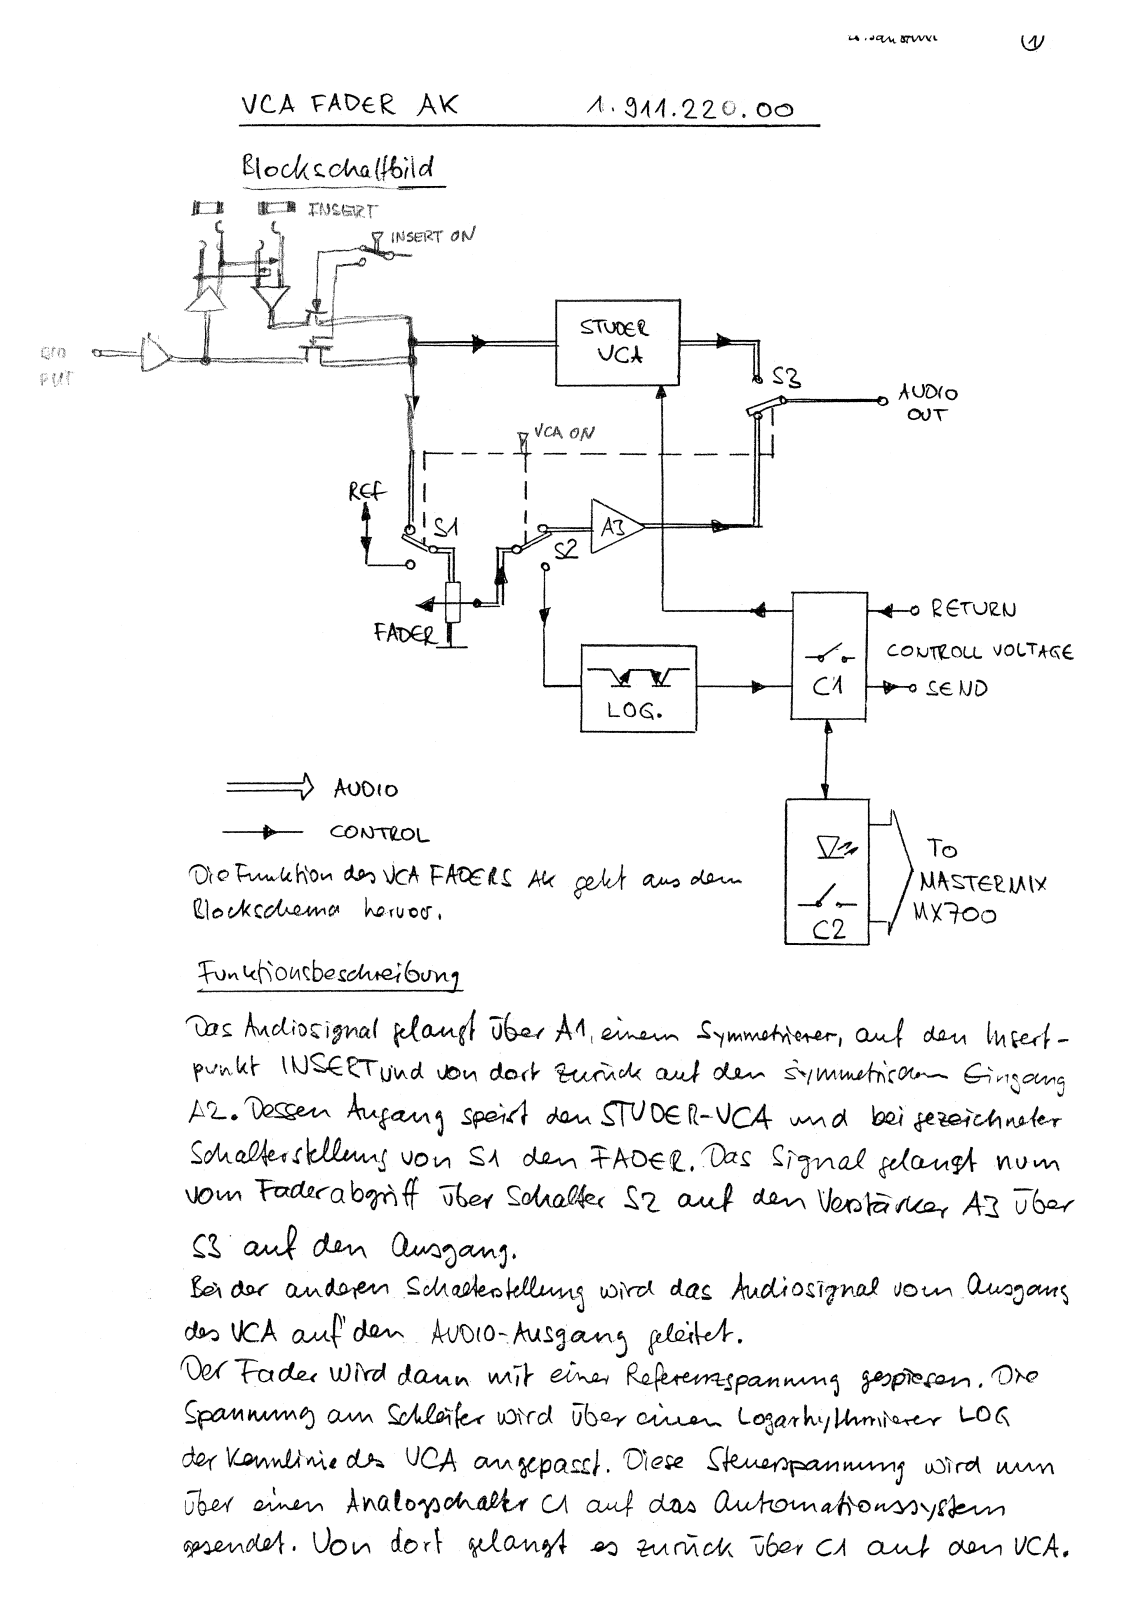 1
VCA FADER AK 1.911.220.00
Blockschaltbild
INSERT
INSERT ON
STUDER
VCA
S3
AUDIO
OUT
PUT
VCA ON
REF
S1
A3
S2
FADER
RETURN
CONTROLL VOLTAGE
C1
SEND
LOG.
AUDIO
CONTROL
TO
MASTERMIX
MX700
C2
Die Funktion des VCA FADERS AK geht aus dem
Blockschema hervor.
Funktionsbeschreibung
Das Audiosignal gelangt über A1, einem Symmetrierer, auf den Insert-
punkt INSERT und von dort zurück auf den symmetrischen Eingang
A2. Dessen Augang speist den STUDER-VCA und bei gezeichneter
Schalterstellung von S1 den FADER. Das Signal gelangt nun
vom Faderabgriff über Schalter S2 auf den Verstärker A3 über
S3 auf den Ausgang.
Bei der anderen Schalterstellung wird das Audiosignal vom Ausgang
des VCA auf den AUDIO-Ausgang geleitet.
Der Fader wird dann mit einer Referenzspannung gespiesen. Die
Spannung am Schleifer wird über einen Logarhythmierer LOG
der Kennlinie des VCA angepasst. Diese Steuerspannung wird nun
über einen Analogschalter C1 auf das Automationssystem
gesendet. Von dort gelangt es zurück über C1 auf den VCA.